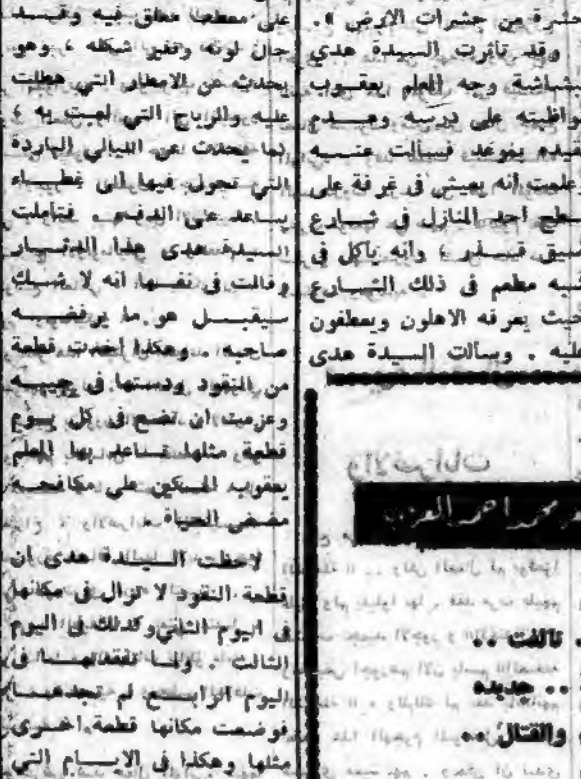 حشرة من حشرات الارض » .
وقد تأثرت السيدة هدي
بشاشة وجه المعلم يعقوب
واظبته على درسه وعـــدم
فسألت عنـــه
علمت أنه يعيش في غرفة على
سطح احد المنازل في شـــارع
ضيق قـــذر ، وانه يأكل في
شبه مطعم في ذلك الشـــارع
حيث يعرفه الاهلون ويعطفون
عليه . وسألت السيدة هدى
محمد احمد العزب
تالفت ..
.. جديده
والقتال ..
معلق فيه وقـــد
حال لونه وتغير شكله ، وهو
يحدث عن الامطار التي هطلت
عليه والرياح التي لعبت به ،
كما يحدث عن الليالي الباردة
التي تحول فيها الى غطـــاء
يساعد على الدفء . فتأملت
السيدة هدى هذا الدثـــار
وقالت في نفسها انه لا شـــك
سيقبـــل هو ما يرفضـــه
صاحبه . وهكذا اخذت قطعة
من النقود ودستها في جيبـــه
وعزمت ان تضع في كل يـــوم
قطعة مثلها تساعد بها المعلم
يعقوب المسكين على مكافحـــة
مضض الحياة
لاحظت الســـيدة هدى ان
قطعة النقود لا تزال في مكانها
في اليوم الثاني وكذلك في اليوم
الثالث . ولما تفقدتهـــا في
اليوم الرابـــع لم تجدهـــا
فوضعت مكانها قطعة اخـــرى
مثلها وهكذا في الايـــام التي